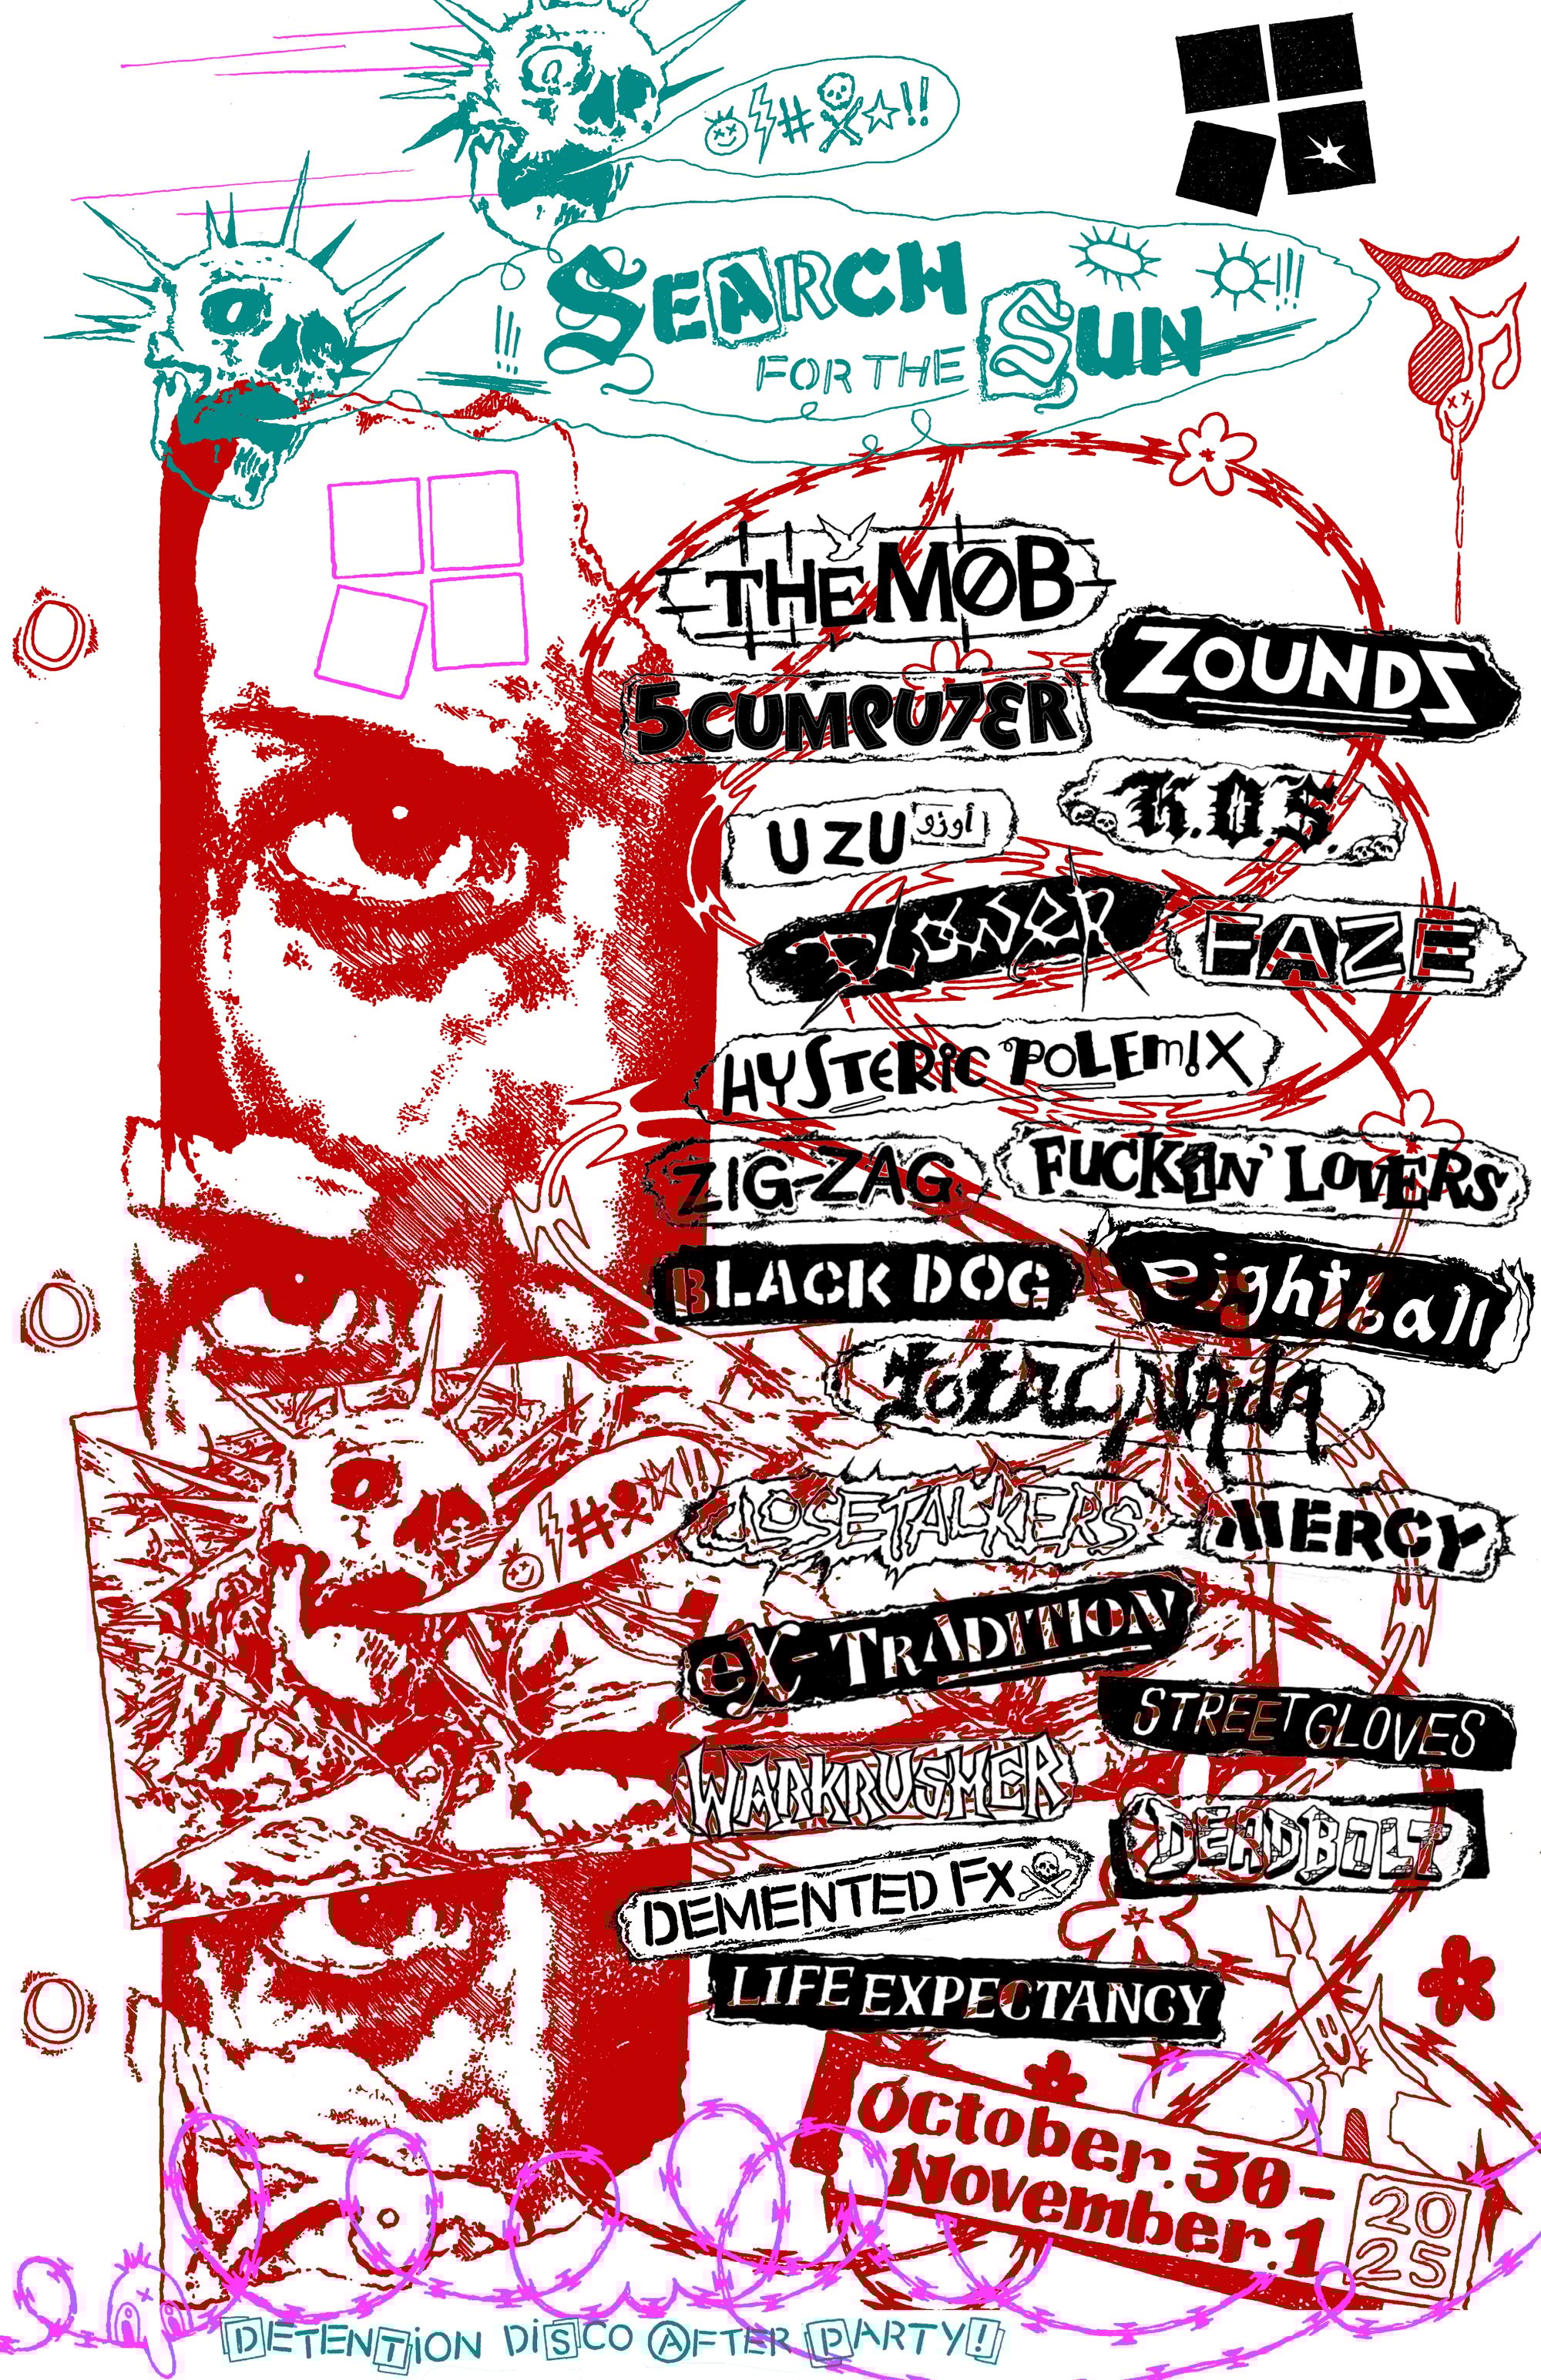 #!!
SEARCH
FOR THE SUN !!!
THE MØB
ZOUNDS
5CUMPU7ER
UZU أوزو
K.O.S.
PLOWSER
FAZE
HYSTERIC POLEM!X
ZIG-ZAG
FUCKIN' LOVERS
BLACK DOG
eightball
TOTAL NADA
#!!
CLOSETALKERS
MERCY
EX-TRADITION
STREET GLOVES
WARKRUSHER
DEADBOLT
DEMENTED FX
LIFE EXPECTANCY
October. 30 -
November. 1 2025
DETENTION DISCO AFTER PARTY!